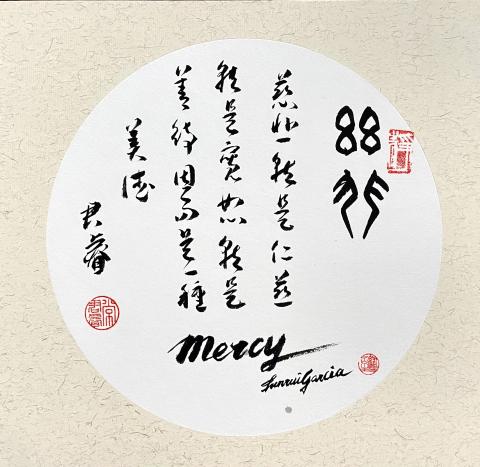 慈悲就是仁慈
就是寬恕就是
善待因而是一種
美德
君睿
mercy
Junrui Garcia